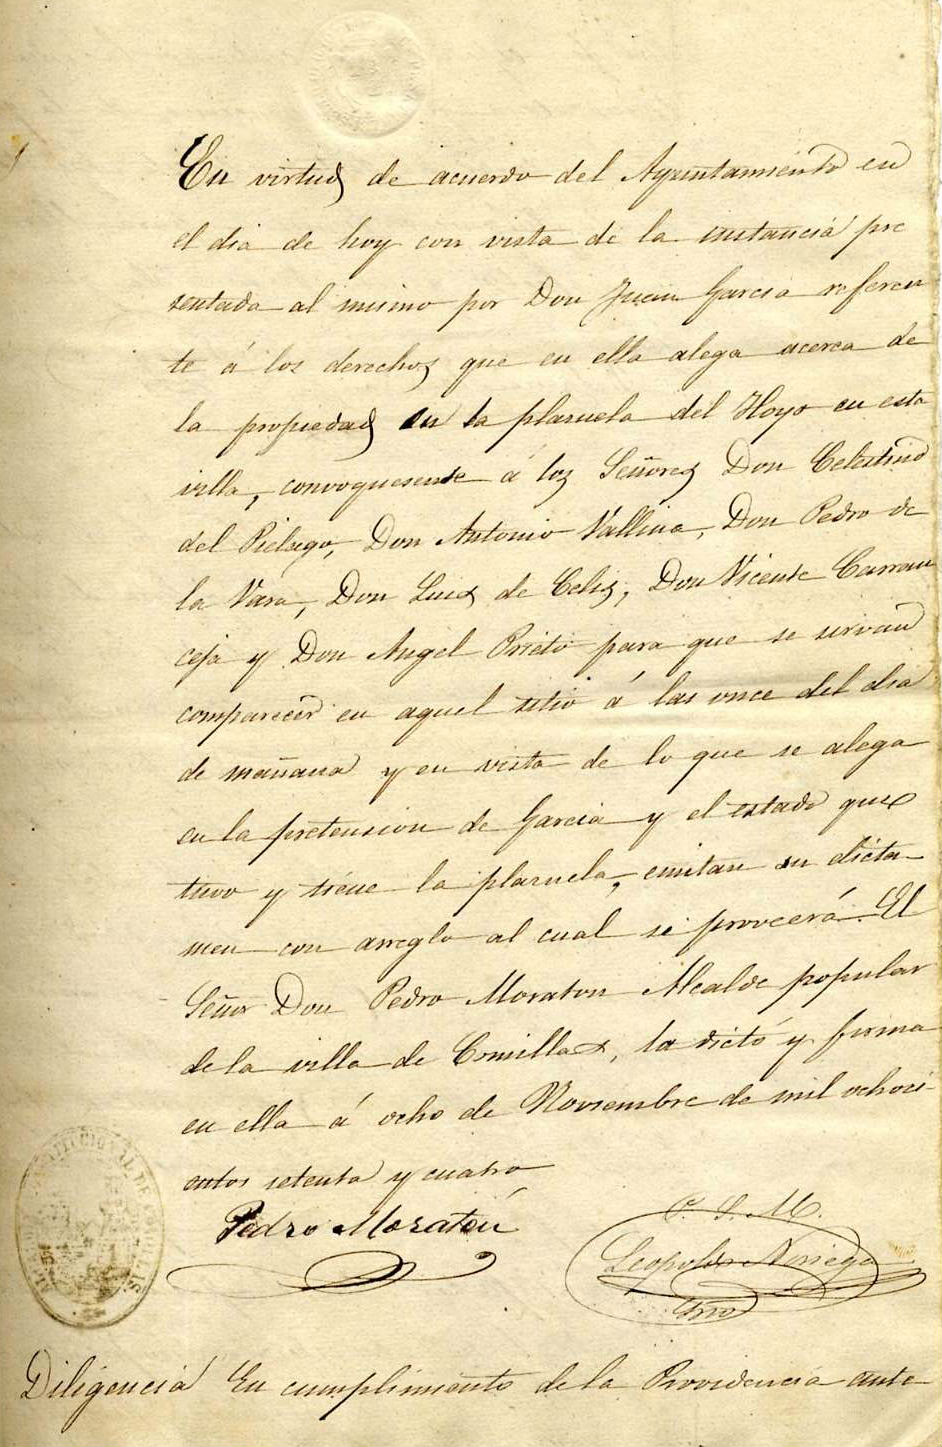 En virtud de acuerdo del Ayuntamiento en
el dia de hoy con vista de la instancia pre
sentada al mismo por Don Juan Garcia referen
te á los derechos que en ella alega acerca de
la propiedad en la plazuela del Hoyo en esta
villa, convoquesense á los Señores Don Celestino
del Pielago, Don Antonio Vallina, Don Pedro de
la Vara, Don Luis de Celis, Don Vicente Carran
ceja y Don Angel Prieto para que se sirvan
comparecer en aquel sitio á las once del dia
de mañana y en vista de lo que se alega
en la pretension de Garcia y el estado que
tuvo y tiene la plazuela, emitan su dicta-
men con arreglo al cual se proveerá. El
Señor Don Pedro Moraton Alcalde popular
de la villa de Comillas, la dictó y firma
en ella á ocho de Noviembre de mil ochoci
entos setenta y cuatro
Pedro Moratón
P. S. M.
Leopoldo Noriega
Srio
Diligencia En cumplimiento de la Providencia ante